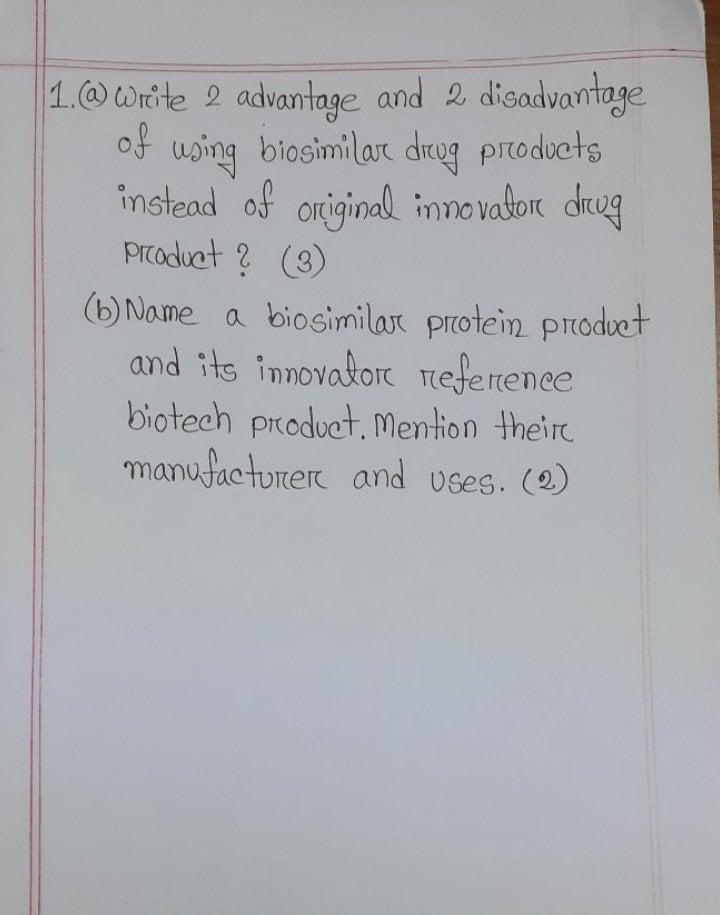 1.(a) Write 2 advantage and 2 disadvantage
of using biosimilar drug products
instead of original innovator drug
product? (3)
(b) Name a biosimilar protein product
and its innovator reference
biotech product. Mention their
manufacturer and uses. (2)